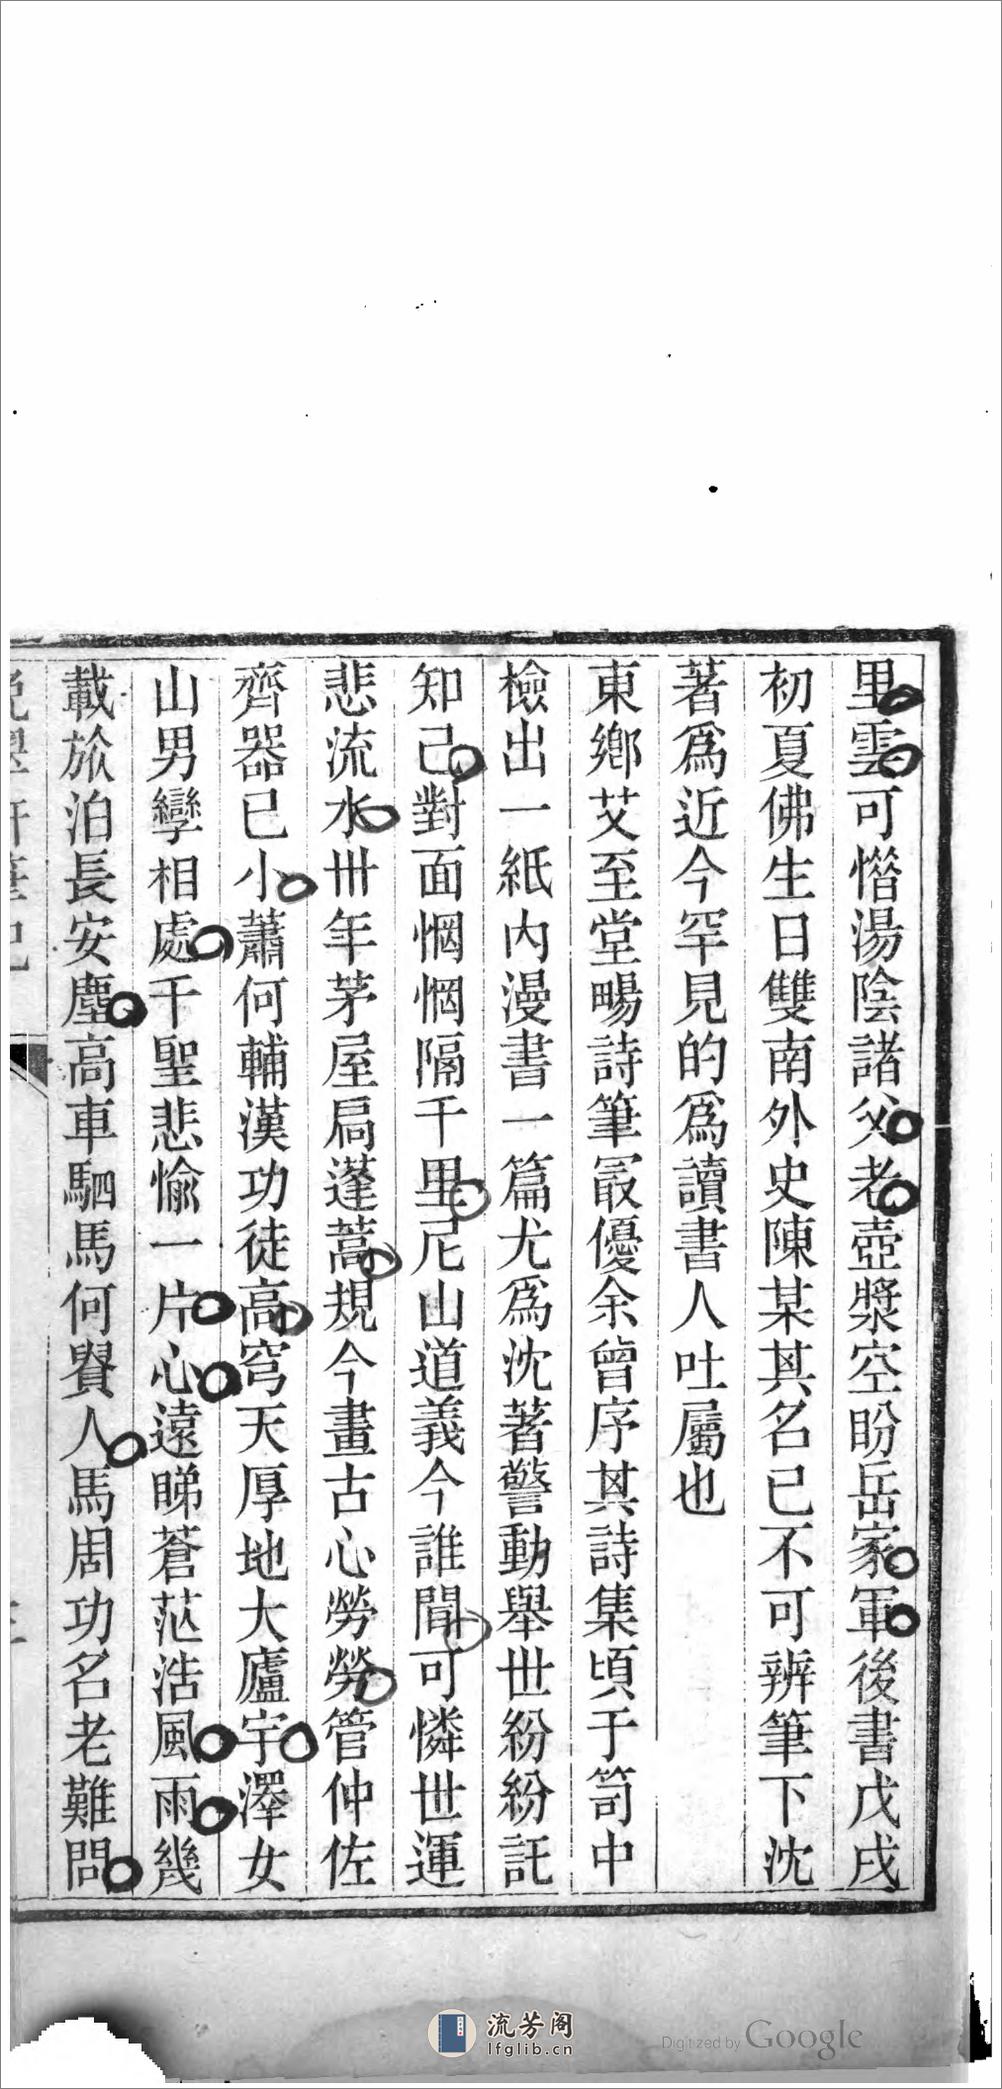 里雲可憯湯陰諸父老壺漿空盼岳家軍後書戊戌
初夏佛生日雙南外史陳某其名已不可辨筆下沈
著爲近今罕見的爲讀書人吐屬也
東鄉艾至堂暢詩筆冣優余曾序其詩集頃于笥中
檢出一紙內漫書一篇尤爲沈著警動舉世紛紛託
知己對面惘惘隔千里尼山道義今誰聞可憐世運
悲流水卌年茅屋扃蓬蒿規今畫古心勞勞管仲佐
齊器已小蕭何輔漢功徒高穹天厚地大廬宇澤女
山男孿相處千聖悲愉一片心遠睇蒼茫浩風雨幾
載旅泊長安塵高車駟馬何賢人馬周功名老難問
流芳阁
lfglib.cn
Digitized by Google